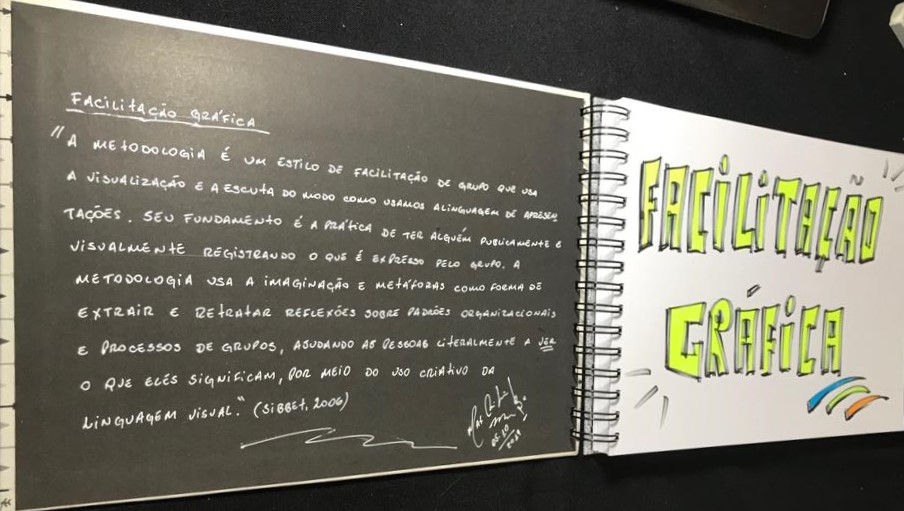 FACILITAÇÃO GRÁFICA
"A METODOLOGIA É UM ESTILO DE FACILITAÇÃO DE GRUPO QUE USA
A VISUALIZAÇÃO E A ESCUTA DO MODO COMO USAMOS A LINGUAGEM DE APRESEN
TAÇÕES. SEU FUNDAMENTO É A PRÁTICA DE TER ALGUÉM PUBLICAMENTE E
VISUALMENTE REGISTRANDO O QUE É EXPRESSO PELO GRUPO. A
METODOLOGIA USA A IMAGINAÇÃO E METÁFORAS COMO FORMA DE
EXTRAIR E RETRATAR REFLEXÕES SOBRE PADRÕES ORGANIZACIONAIS
E PROCESSOS DE GRUPOS, AJUDANDO AS PESSOAS LITERALMENTE A VER
O QUE ELES SIGNIFICAM, POR MEIO DO USO CRIATIVO DA
LINGUAGEM VISUAL." (SIBBET, 2006)
FACILITAÇÃO
GRÁFICA